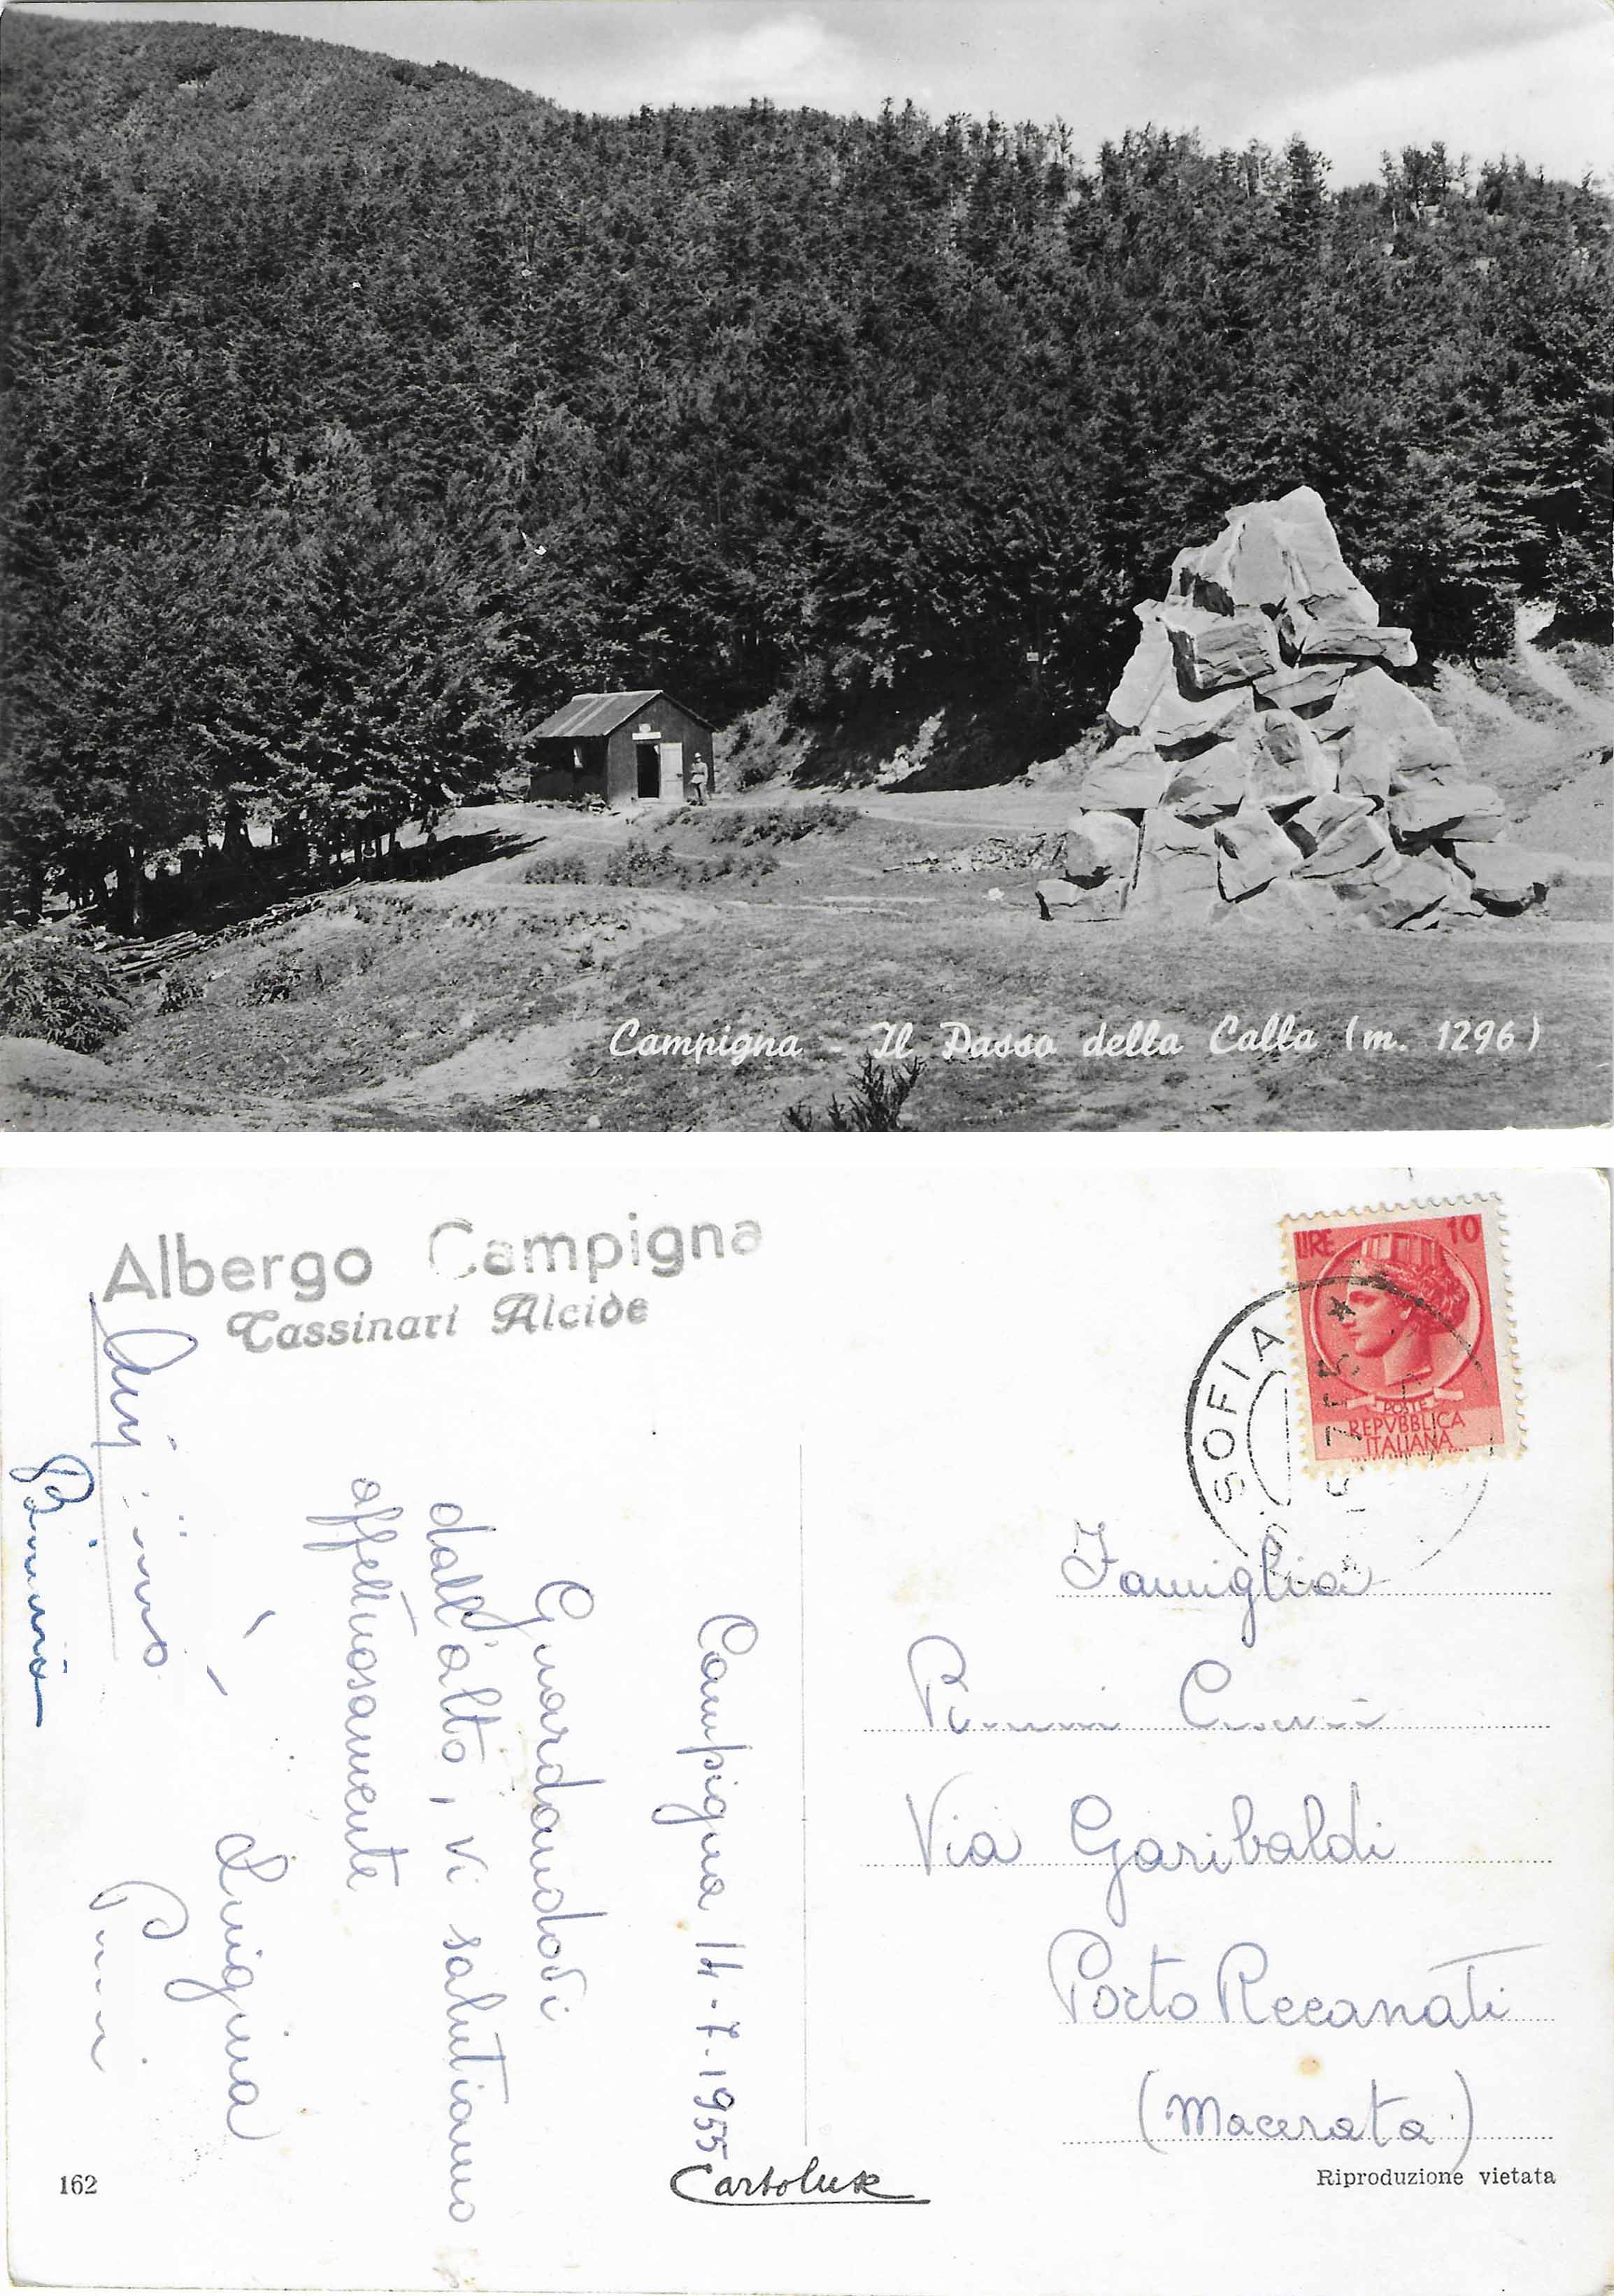 Campigna - Il Passo della Calla (m. 1296)
Albergo Campigna
Tassinari Alcide
LIRE 10
POSTE
REPVBBLICA
ITALIANA
SOFIA
Campigna 14-7-1955
Guardandovi
dall'alto, vi salutiamo
affettuosamente
Luigina
Famiglia
Via Garibaldi
Porto Recanati
(Macerata)
162
Cartolux
Riproduzione vietata